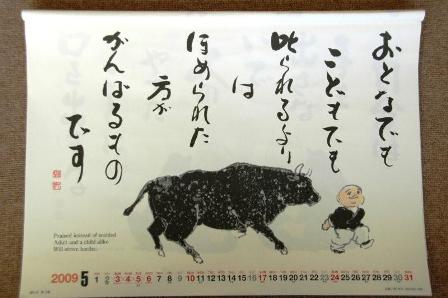 おとなでも
こどもでも
叱られるより
は
ほめられた
方が
がんばるもの
です
Praised instead of scolded
Adult and a child alike
Will strive harder.
2009 5 1 2 3 4 5 6 7 8 9 10 11 12 13 14 15 16 17 18 19 20 21 22 23 24 25 26 27 28 29 30 31